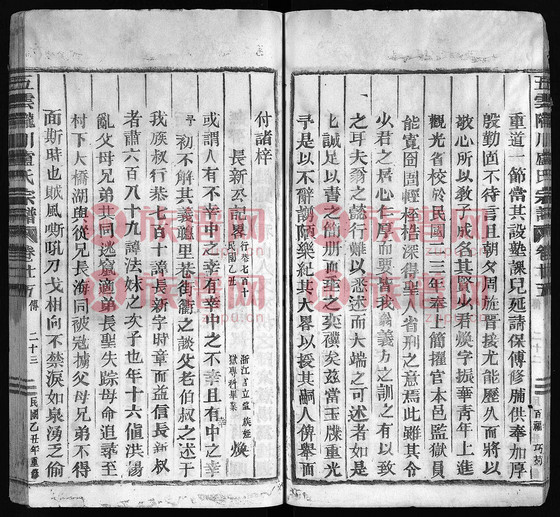 五雲隴川盧氏宗譜
卷廿五
傳
二十二
百福
巧菊
重道一節當其設塾課兒延請保傅修脯供奉加厚
殷勤固不待言且朝夕周旋晉接尤能歷久而將以
敬心所以教子成名其賢似君煥字振華青年上進
觀光省校於民國二三年奉上簡擢官本邑監獄員
能寬囹圄輕桎梏深得聖人省刑之意焉此雖其令
少君之居心仁厚而要皆我翁義方之訓之有以致
之耳夫翁之懿行難以悉述而大端之可述者如是
誠足以書之竹册而垂之奕禩矣兹當玉牒重光
予是以不辭謭陋樂紀其大畧以授其嗣人俾舉而
付諸梓
長新丕記畧
行卷七百十
民國乙丑
浙江官立監
獄專科畢業
族姪
煥
或謂人有不幸中之幸有幸中之不幸且有中之
初不解其義聽里巷街衢之談父老伯叔之述于
我族叔行巷七百十諱長新字時章而益信長新叔
者肅六百八十九諱法妹之次子也年十六值洪楊
亂父母兄弟共同逃竄適弟長聖失踪母命追尋至
村下大橋湖與從兄長海同被寇擄父母兄弟不得
面斯時也賊風嘶吼刀戈相向不禁淚如泉湧乏偷
五雲隴川盧氏宗譜
卷廿五
傳
二十三
民國乙丑年重修
族谱网
zupu.cn